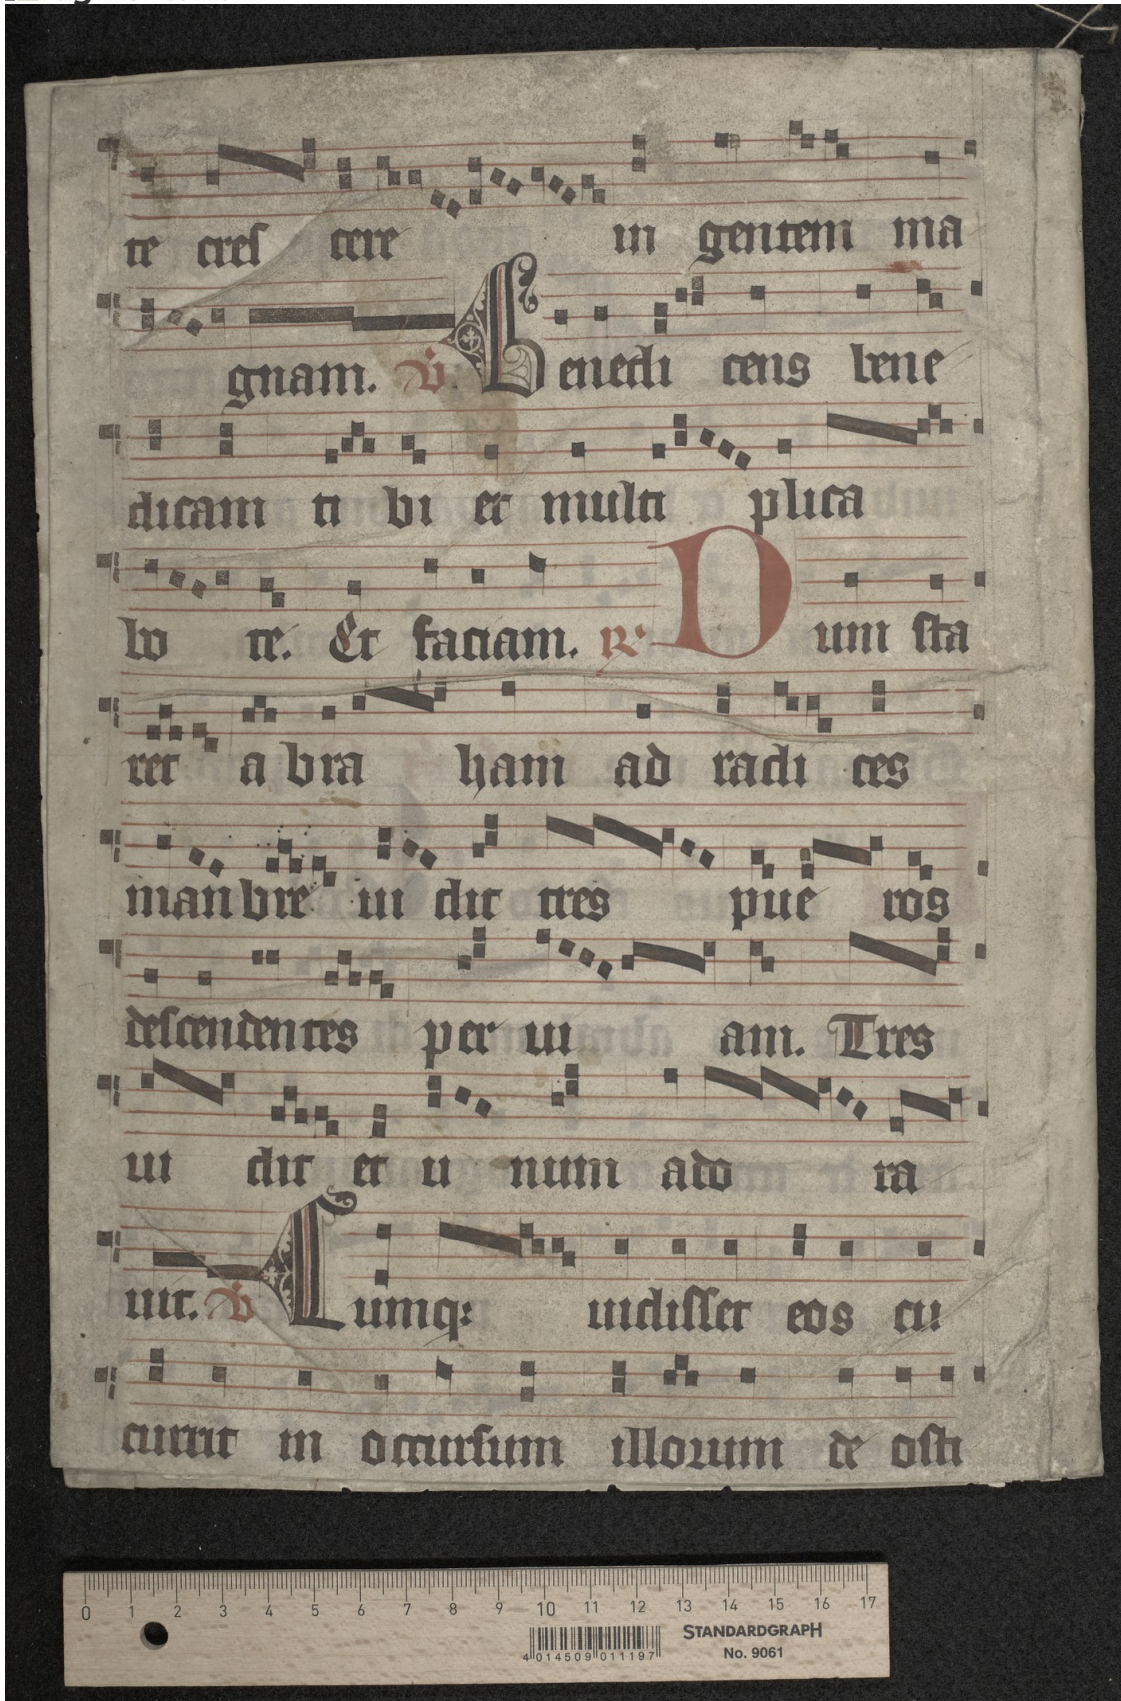 te cres cere in gentem ma
gnam. V. Benedi cens bene
dicam ti bi et multi plica
bo te. Et faciam. R. Dum sta
ret a bra ham ad radi ces
manbre ui dit tres pue ros
descendentes per ui am. Tres
ui dit et u num ado ra
uit. V Cumq: uidisset eos cu
currit in occursum illorum de osti
0 1 2 3 4 5 6 7 8 9 10 11 12 13 14 15 16 17
4 014509 011197
STANDARDGRAPH
No. 9061